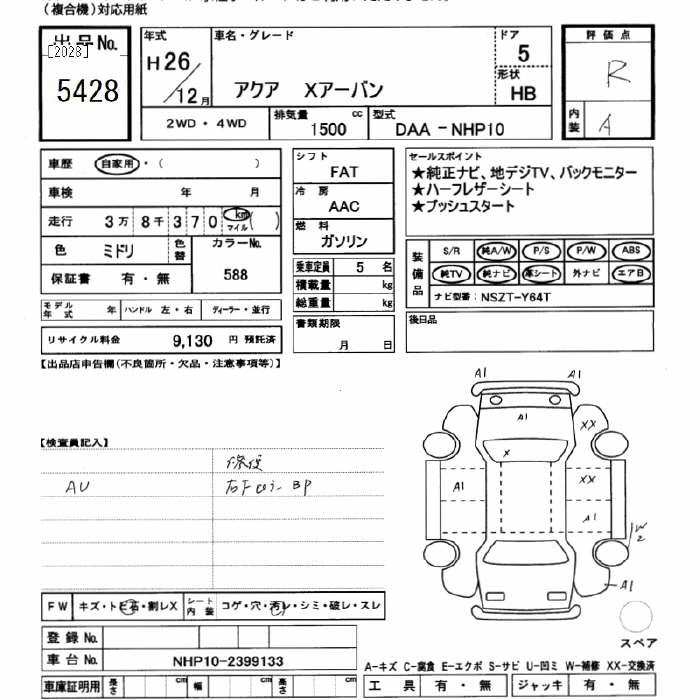 (複合機)対応用紙
出品No. [2028] 5428
年式 H26/12月
車名・グレード アクア Xアーバン
ドア 5
形状 HB
評価点 R
内装 A
2WD・4WD
排気量 1500 cc
型式 DAA-NHP10
車歴 自家用・( )
車検 年 月
走行 3万 8千 3 7 0 km マイル ( )
色 ミドリ 色替 カラーNo. 588
保証書 有・無
モデル年式 年 ハンドル 左・右 ディーラー・並行
リサイクル料金 9,130 円 預託済
シフト FAT
冷房 AAC
燃料 ガソリン
乗車定員 5 名
積載量 kg
総重量 kg
書類期限 月 日
セールスポイント
★純正ナビ、地デジTV、バックモニター
★ハーフレザーシート
★プッシュスタート
装備品 S/R 純A/W P/S P/W ABS
純TV 純ナビ 革シート 外ナビ エアB
ナビ型番: NSZT-Y64T
後日品
【出品店申告欄(不良箇所・欠品・注意事項等)】
【検査員記入】
修復
AU
BP
A1 A1
A1 XX
X
A1 XX
A1
W2
A1
スペア
FW キズ・トビ石・割レX シート内装 コゲ・穴・汚レ・シミ・破レ・スレ
登録No.
車台No. NHP10-2399133
車庫証明用 長さ cm 幅 cm 高さ cm
A-キズ C-腐食 E-エクボ S-サビ U-凹ミ W-補修 XX-交換済
工具 有・無 ジャッキ 有・無